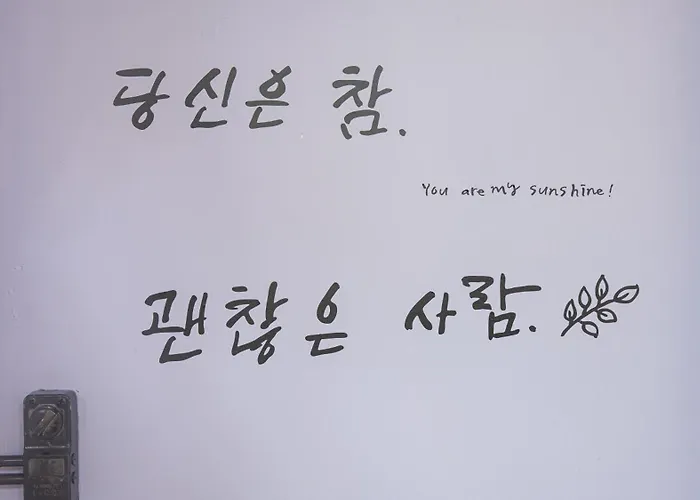 당신은 참.
You are my sunshine!
괜찮은 사람.